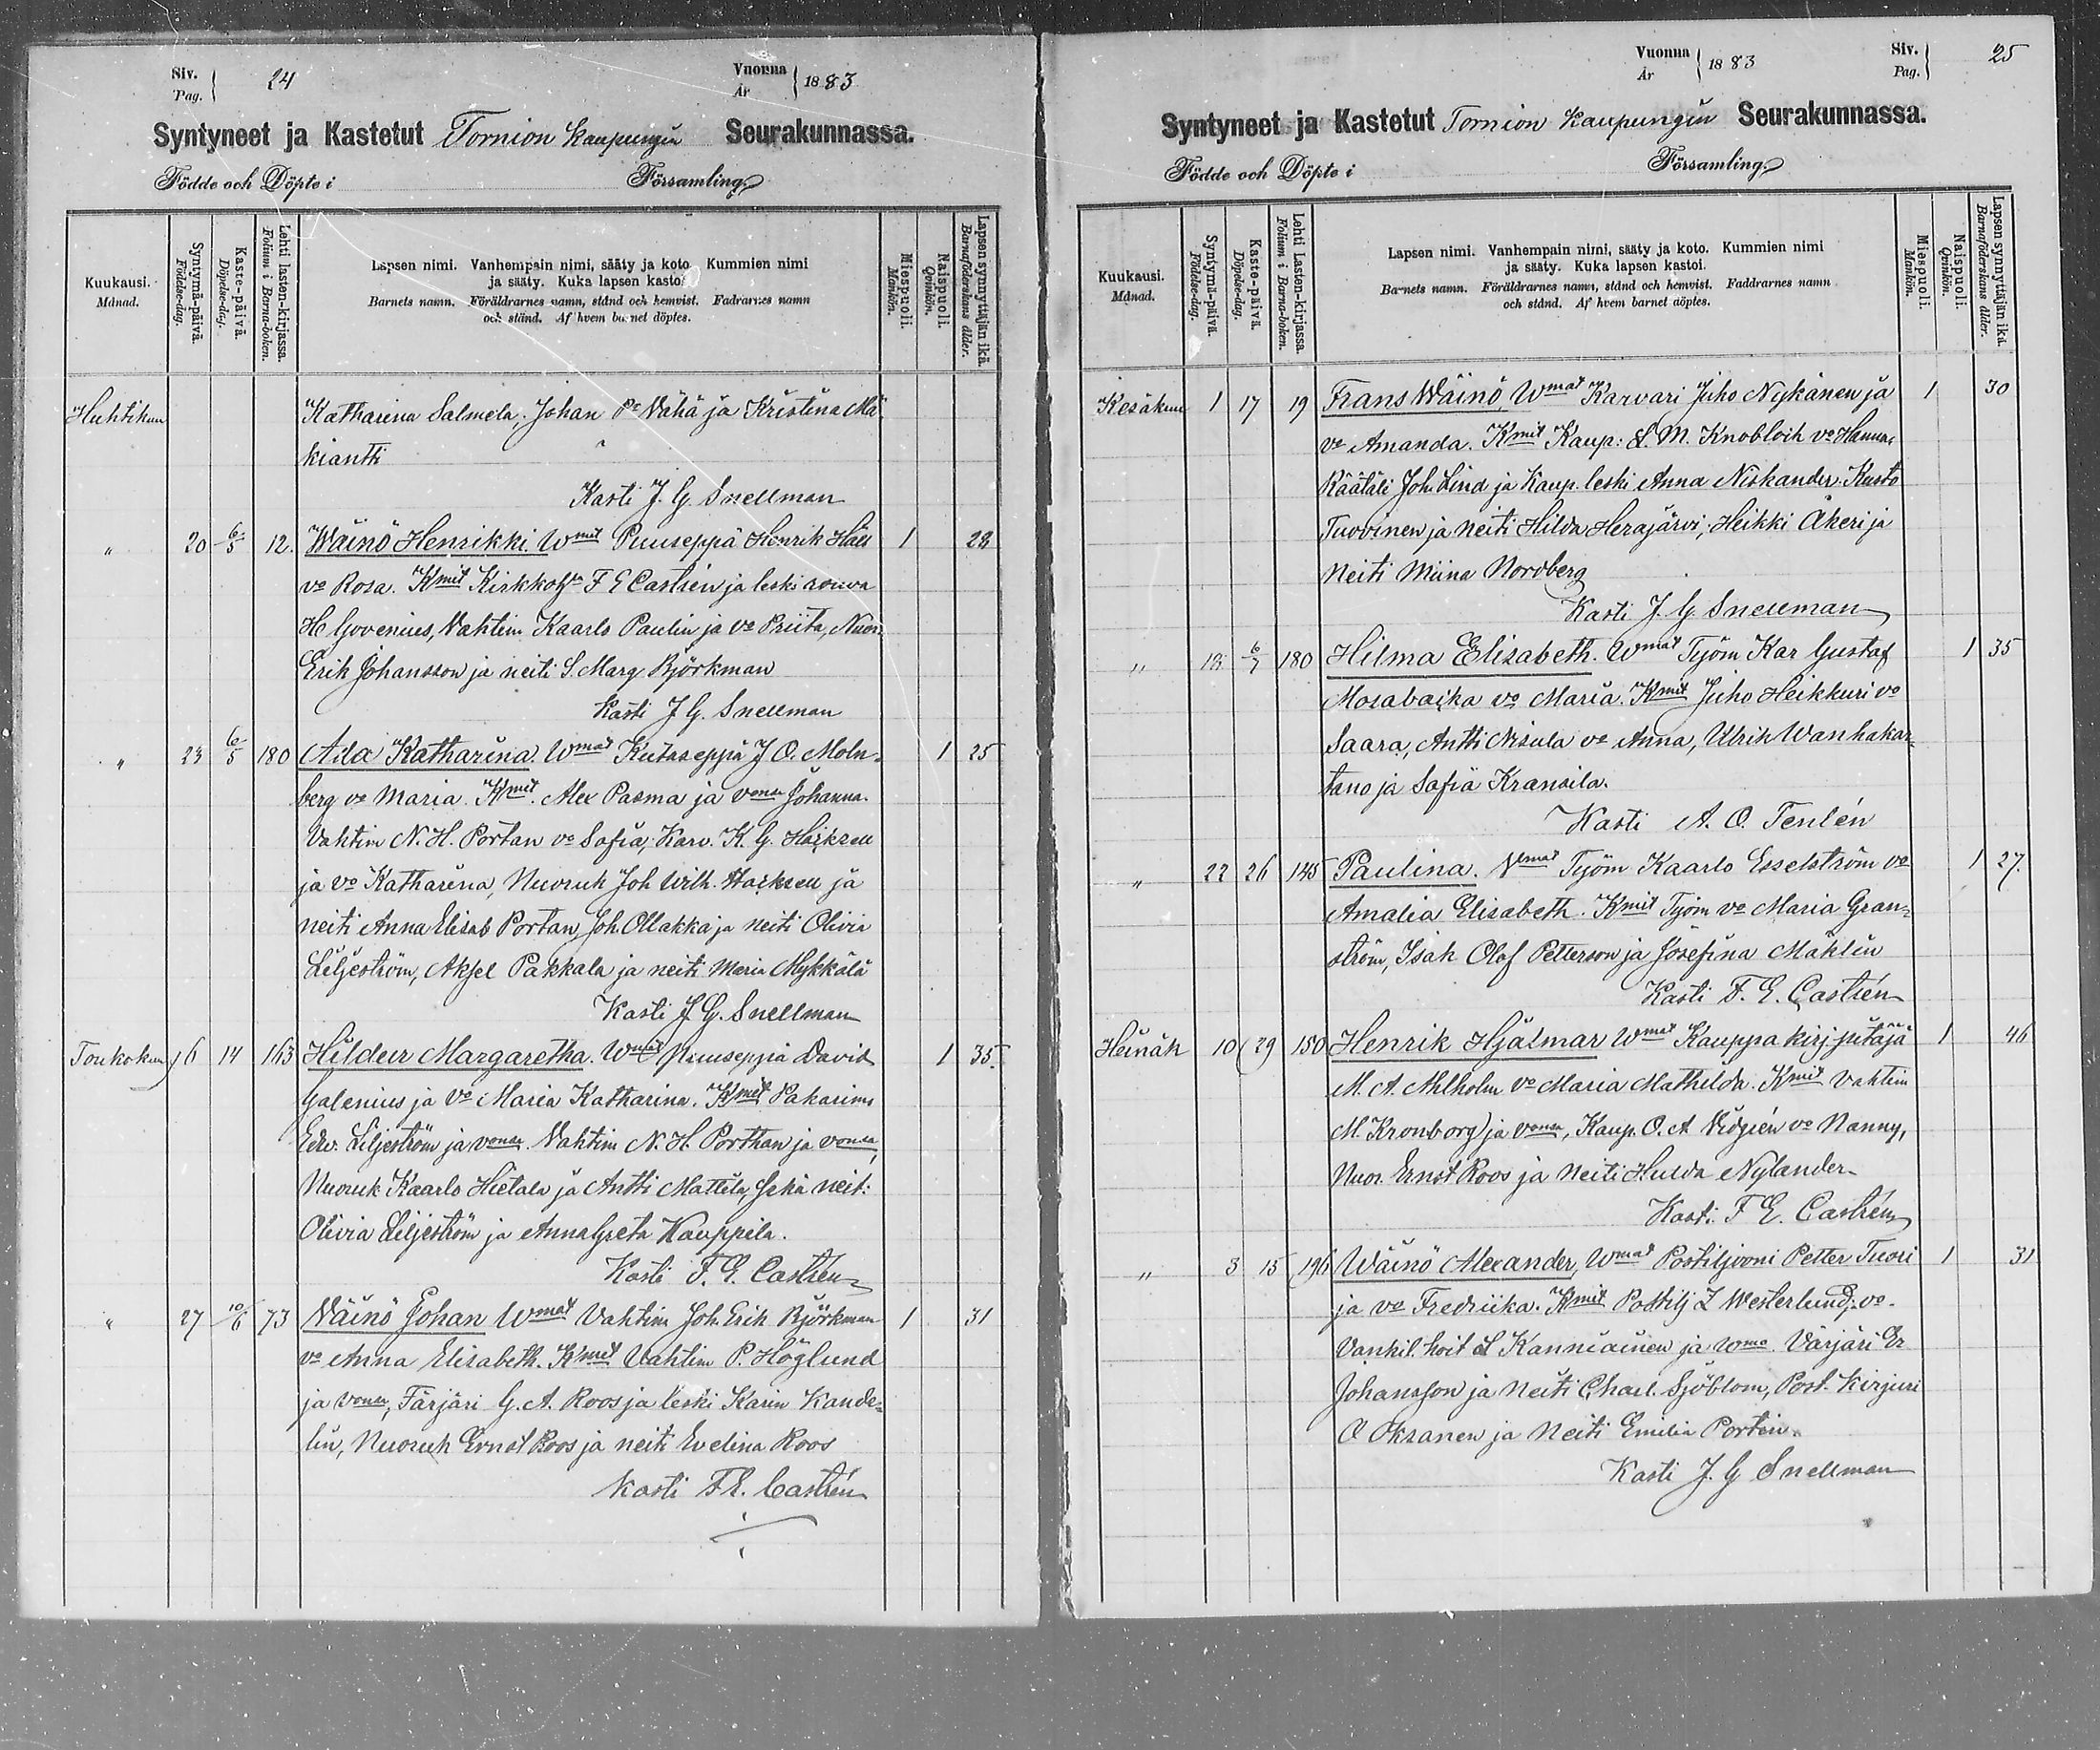 Siv. Pag. 24
Vuonna År 1883
Syntyneet ja Kastetut Tornion kaupungin Seurakunnassa.
Födde och Döpte i Församling
Kuukausi. Månad.
Syntymä-päivä. Födelse-dag.
Kaste-päivä. Döpelse-dag.
Lehti lasten-kirjassa. Folium i Barna-boken.
Lapsen nimi. Vanhempain nimi, sääty ja koto. Kummien nimi
ja sääty. Kuka lapsen kastoi.
Barnets namn. Föräldrarnes namn, stånd och hemvist. Fadrarnes namn
och stånd. Af hvem barnet döptes.
Miespuoli. Mankön.
Naispuoli. Qvinkön.
Lapsen synnyttäjän ikä. Barnaföderskans ålder.
Huhtikun Katharina Salmela, Johan Pr Vähä ja Kristina Mä
kiantti
Kasti J. G. Snellman
" 20 6/5 12. Wäinö Henrikki. Wmat Puuseppä Henrik 1 28
vo Rosa. Kmit F E Castrén ja leski rouva
H Govenius, Vahtim Kaarlo Paulin ja vo Priita, Nuor.
Erik Johansson ja neiti S. Marg Björkman
Kasti J G. Snellman
" 23 6/5 180 Aila Katharina. Wmat J. O. Moln- 1 25
berg vo Maria. Kmit. Alex Pasma ja vonsa Johanna.
Vahtim N. H. Portan vo Sofia, Karv. K. G.
ja vo Katharina, Nuoruk Joh Wilh. ja
neiti Anna Elisab Portan, Joh. Ollakka ja neiti Olivia
Liljeström, Aksel Pakkala ja neiti Maria Mykkälä
Kasti J G. Snellman
Toukokun 6 14 163 Hildur Margaretha. Wmat Puuseppä David 1 35.
Galenius ja vo Maria Katharina. Kmit Vakarims
Edw. Liljeström ja vonsa. Vahtim N. H. Porthan ja vonsa,
Nuoruk Kaarlo Hietala ja Antti Mattila, sekä neit:
Olivia Liljeström ja Anna Greta Kauppila.
Kasti F. E. Castrén
" 27 10/6 73 Väinö Johan Wmat Vahtim Joh. Erik Björkman 1 31
vo Anna Elisabeth. Kmit Vahtim P. Höglund
ja vonsa, Färjäri G. A. Roos ja leski Karin Kande-
lin, Nuoruk Ernst Roos ja neiti Evelina Roos
Kasti F E. Castrén
Vuonna År 1883
Siv. Pag. 25
Syntyneet ja Kastetut Tornion kaupungin Seurakunnassa.
Födde och Döpte i Församling
Kuukausi. Månad.
Syntymä-päivä. Födelse-dag.
Kaste-päivä. Döpelse-dag.
Lehti Lasten-kirjassa. Folium i Barna-boken.
Lapsen nimi. Vanhempain nimi, sääty ja koto. Kummien nimi
ja sääty. Kuka lapsen kastoi.
Barnets namn. Föräldrarnes namn, stånd och hemvist. Faddrarnes namn
och stånd. Af hvem barnet döptes.
Miespuoli. Mankön.
Naispuoli. Qvinkön.
Lapsen synnyttäjän ikä. Barnaföderskans ålder.
Kesäkun 1 17 19 Frans Wäinö, Wmat Karvari Juho Nykänen ja 1 30
vo Amanda. Kmit Kaup: M. Knobloch vo Hanna,
Räätäli Joh. Lind ja Kaup. leski Anna Niskander. Kusto
Tuovinen ja neiti Hilda Herajärvi, Heikki Åkeri ja
Neiti Miina Nordberg
Kasti J. G. Snellman
" 13 6/7 180 Hilma Elisabeth. Wmat Työm Kar Gustaf 1 35
Mosabacka vo Maria. Kmit Juho Heikkuri vo
Saara, Antti Nisula vo Anna, Ulrik Wanhakar-
tano ja Sofia Kransila.
Kasti A. O. Tenlén
" 22 26 145 Paulina. Vmat Työm Kaarlo Esselström vo 1 27.
Amalia Elisabeth. Kmit Työm vo Maria Gran-
ström, Isak Olof Petterson ja Josefina Mählin
Kasti F. E. Castrén
Heinäk 10 29 150 Henrik Hjalmar Wmat Kauppa kirj. pitäjä 1 46
M. A. Ahlholm vo Maria Mathilda. Kmit Vahtim
M. Kronborg ja vonsa, Kaup. O. A. vo Nanny,
Nuor. Ernst Roos ja Neiti Hulda Nylander
Kasti F E. Castrén
" 3 15 196 Wäinö Alexander, Wmat Postiljooni Petter Tuori 1 31
ja vo Fredriika. Kmit Postilj Z Westerlund, vo.
Vankil. hoit L Kanniainen ja Värjäri Er
Johansson ja Neiti Charl. Sjöblom, Post. kirjuri
O Oksanen ja Neiti Emilia Portin.
Kasti J. G Snellman